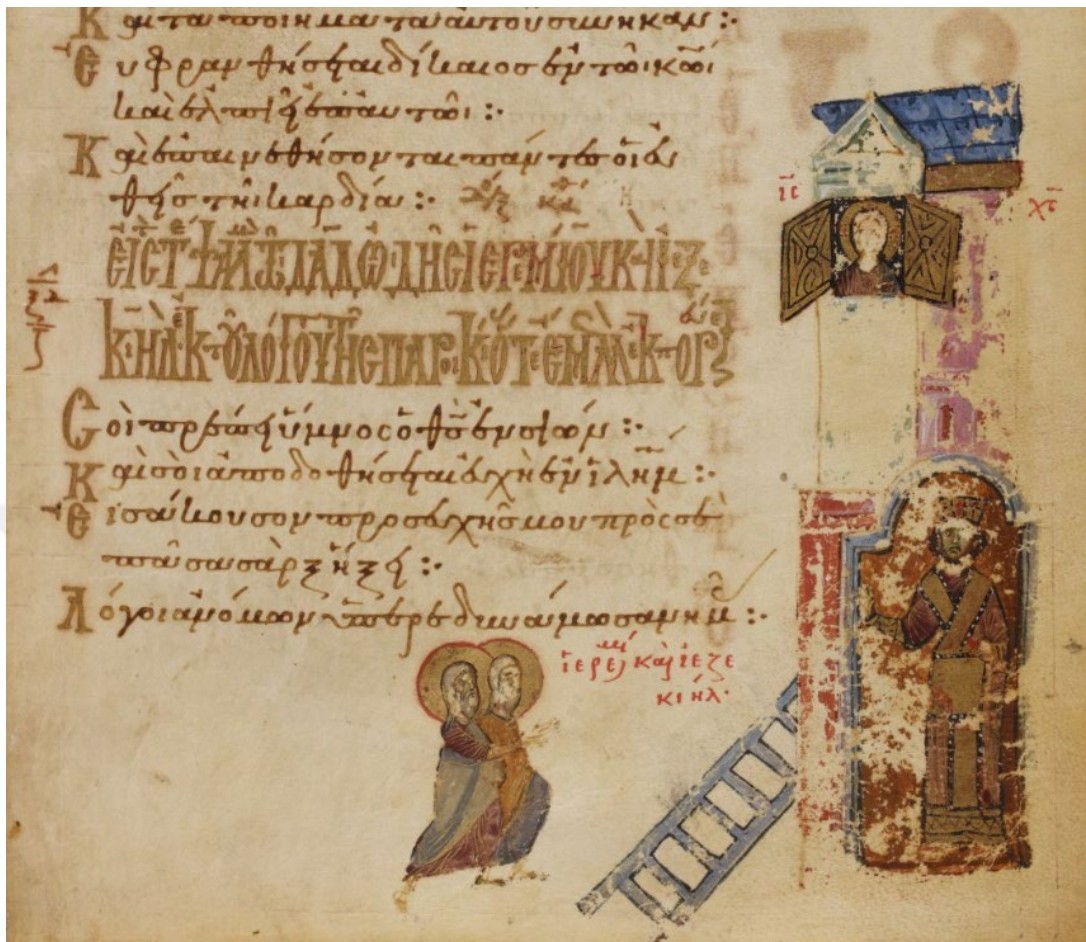 Καὶ τὰ ποιήματα αὐτοῦ συνῆκαν :·
Εὐφρανθήσεται δίκαιος ἐν τῶι κ̅ω̅ι
καὶ ἐλπιεῖ ἐπ αὐτῶι :·
Καὶ ἐπαινεθήσονται πάντες οἱ εὐ
θεῖς τῆι καρδίαι :·
ΕΙΣ Τ ΨΑΛ ΔΑΔ ΩΔΗ ΙΕΡΕΜΙΟΥ Κ ΙΕΖΕ
ΚΙΗΛ Κ ΤΟΥ ΛΟΓΟΥ ΤΗΣ ΠΑΡΟΙΚΙ ΟΤΕ ΕΜΕΛ ΕΚΠΟΡ
Σοὶ πρέπει ὕμνος ὁ θ̅ς̅ ἐν σιών :·
Καὶ σοὶ ἀποδοθήσεται εὐχὴ ἐν ϊλη̅μ :·
Εἰσάκουσον προσευχῆς μου πρὸς σὲ
πᾶσα σὰρξ ἥξει :·
Λόγοι ἀνόμων ὑπερεδυνάμωσαν ημ :·
ι̅ς̅ χ̅ς̅
ϊερεμι καὶ ϊεζε
κιήλ·